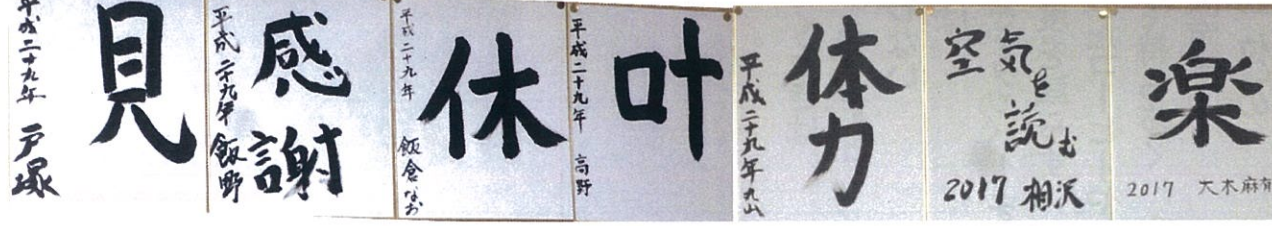 見
平成二十九年 戸塚
感
謝
平成二十九年 飯野
休
平成二十九年 飯倉なお
叶
平成二十九年 高野
体
力
平成二十九年 丸山
空気を読む
2017 相沢
楽
2017 大木麻有